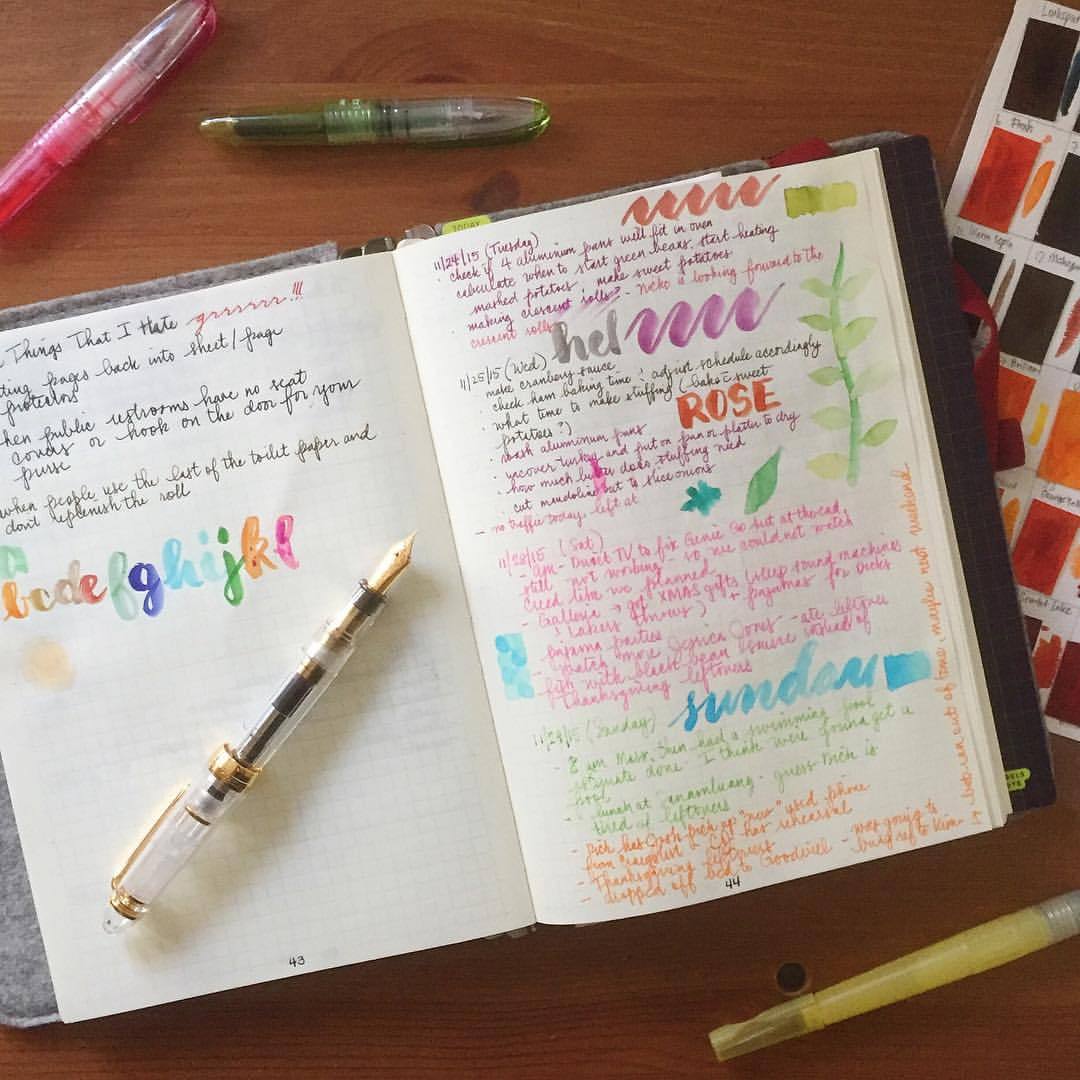 Things That I Hate grrrrr!!!
pages back into sheet/page
protectors
when public restrooms have no seat
covers or hook on the door for your
purse
when people use the last of the toilet paper and
don't replenish the roll
bcdefghijkl
43
TODAY
11/24/15 (Tuesday)
· check if 4 aluminum pans will fit in oven
· calculate when to start green beans, start heating
mashed potatoes, make sweet potatoes
· making crescent rolls? - Nicko is looking forward to the
crescent rolls
hel
11/25/15 (Wed)
· make cranberry sauce
· check ham baking time & adjust schedule accordingly
· what time to make stuffing (bake sweet
potatoes?)
ROSE
· wash aluminum pans
· uncover turkey and put on pan or platter to dry
· how much does stuffing need
· cut mandoline out to slice onions
- no traffic today, left at
11/28/15 (Sat)
- am - Direct TV to fix Genie so but at thread,
still not working so we could not watch
Creed like we planned
- Galleria → got XMAS gifts (sleep sound machines
& Lakers throws) + pajamas for
pajama parties
- watch more Jessica Jones - ate leftover
fish with black bean instead of
Thanksgiving leftovers
sunday
11/29/15 (Sunday)
- 8 am Mass, then had a swimming pool
estimate done. I think we're gonna get a
pool
- lunch at - guess Rich is
tired of leftovers
- Rich has Josh pick up "new" used phone
from Craigslist & has rehearsal
- Thanksgiving leftovers
- dropped off bed to Goodwill - was going to
44
- bob ran out of time, maybe next weekend
Flesh
Warm Sepia
Scarlet Lake